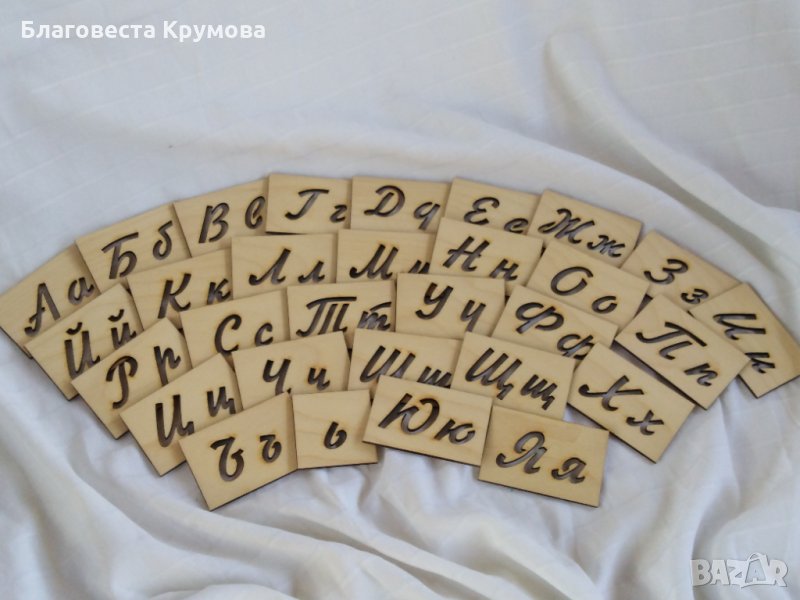 Благовеста Крумова
Аа Бб Вв Гг Дд Ее Жж Зз Ии
Йй Кк Лл Мм Нн Оо Пп
Рр Сс Тт Уу Фф Хх
Цц Чч Шш Щщ
Ъъ ь Юю Яя
BAZAR